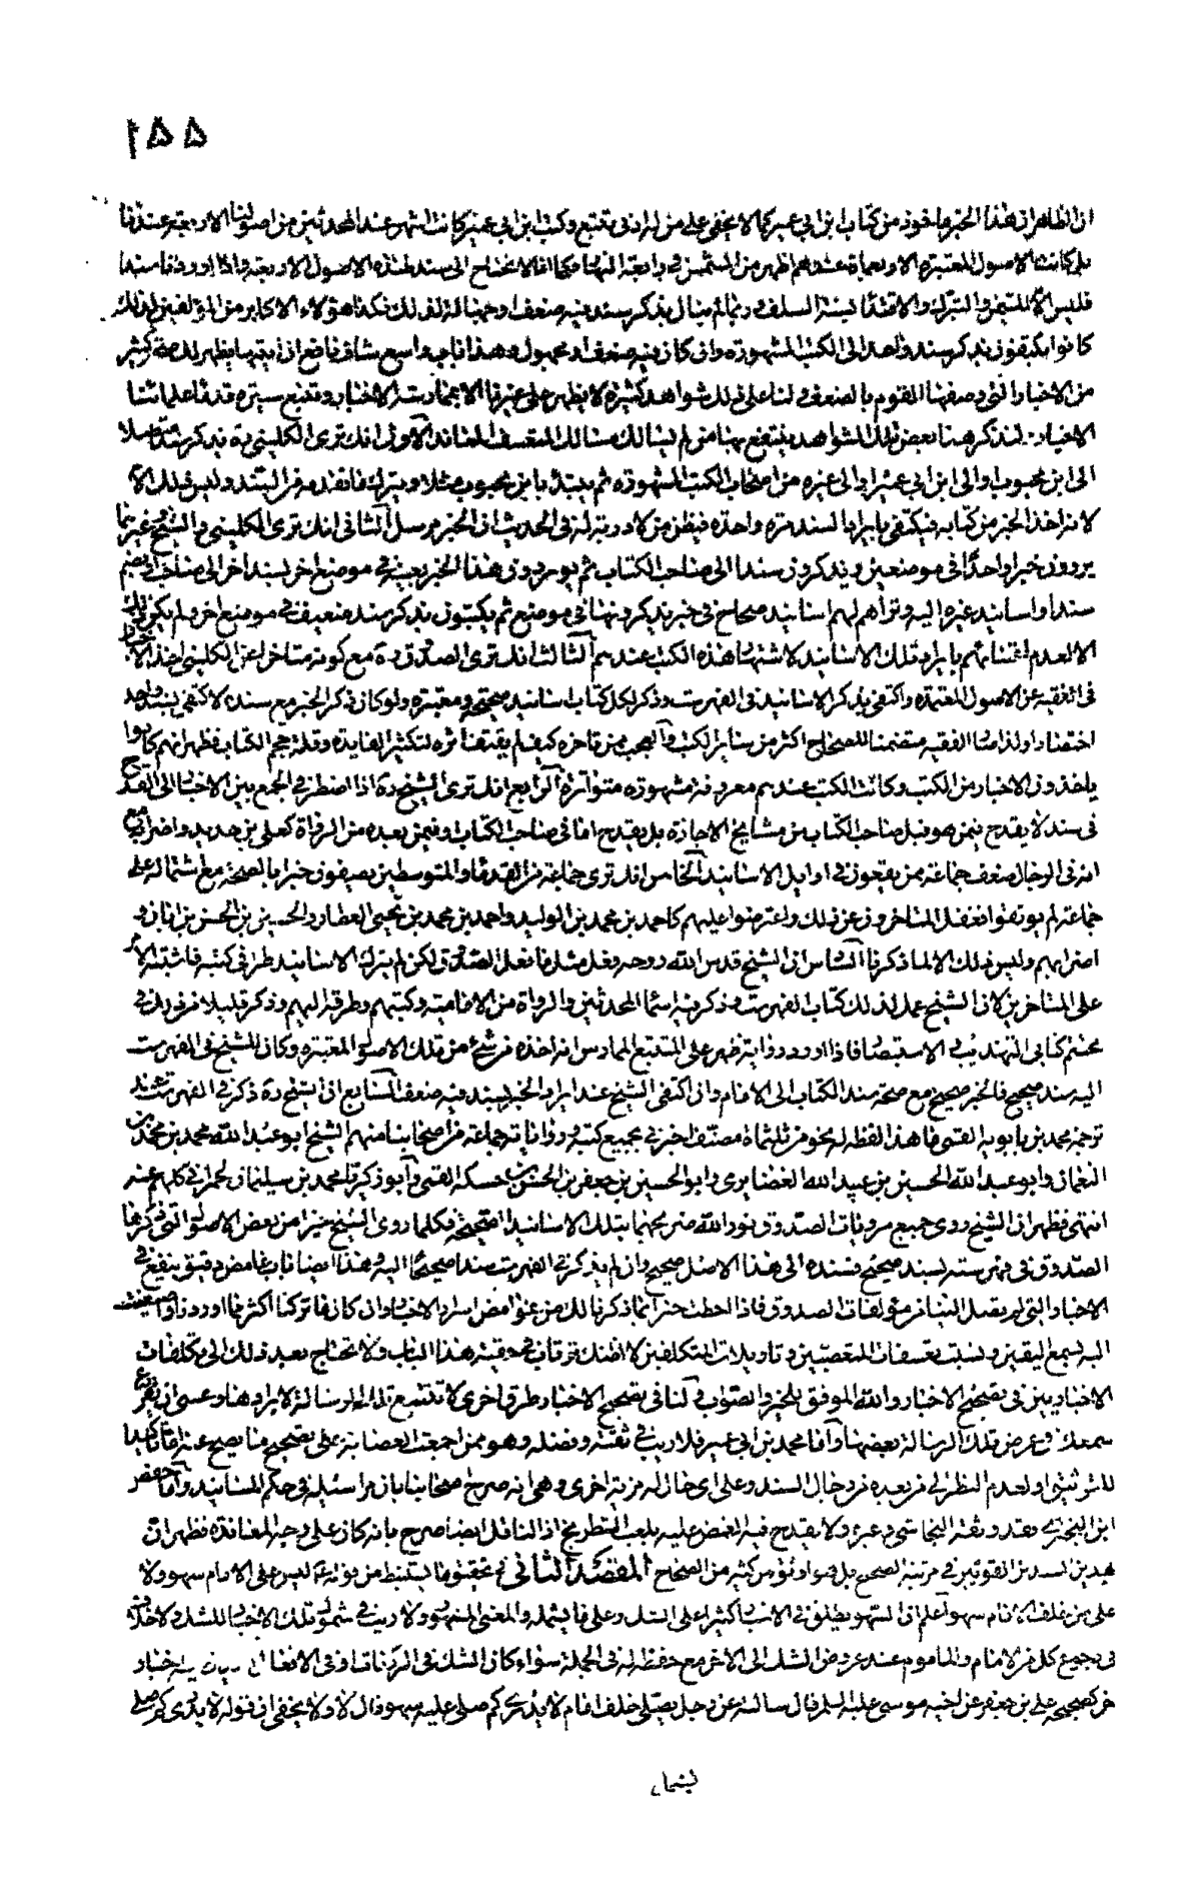 ۱۵۵
ان الظاهر ان هذا الخبر ماخوذ من كتاب ابن ابي عمير كما لا يخفى على من له ادنى تتبع وكتب ابن ابي عمير كانت اشهر عند المحدثين من اصولنا الاربعة عندنا
بل كانت الاصول المعتبرة الاربعمائة عندهم اظهر من الشمس في رابعة النهار فكما انا لا نحتاج الى سند لهذه الاصول الاربعة واذا اوردنا سندا
فليس الا للتيمن والتبرك والاقتداء بسنة السلف وربما لم ينال بذكر سند فيه ضعف او جهالة لذلك فكذا هؤلاء الاكابر من المؤلفين لذلك
كانوا يكتفون بذكر سند واحد الى الكتب المشهورة وان كان فيه ضعف او مجهول وهذا باب واسع شاف نافع ان اتيتها يظهر لك صحة كثير
من الاخبار التي وصفها القوم بالضعف ولنا على ذلك شواهد كثيرة لا يظهر على غيرنا الا بممارسة الاخبار وتتبع سيرة قدماء علمائنا
الاخيار ولنذكر هنا بعض تلك الشواهد ينتفع بها من لم يسلك مسالك المتعسف المعاند الاول انك ترى الكليني ره يذكر سندا متصلا
الى ابن محبوب او الى ابن ابي عمير او الى غيره من اصحاب الكتب المشهورة ثم يبتدئ بابن محبوب مثلا ويترك ما تقدمه من السند وليس ذلك الا
لانه اخذ الخبر من كتابه فيكتفي بايراد السند مرة واحدة فيظن من لا دربة له في الحديث ان الخبر مرسل الثاني انك ترى الكليني والشيخ وغيرهما
يروون خبرا واحدا في موضعين ويذكرون سندا الى صاحب الكتاب ثم يوردون هذا الخبر بعينه في موضع اخر بسند اخر الى صاحب الكتاب او يضم
سندا او اسانيد غيره اليه وتراهم لهم اسانيد صحاح في خبر يذكرونها في موضع ثم يكتفون بذكر سند ضعيف في موضع اخر ولم يكن ذلك
الا لعدم اعتنائهم بايراد تلك الاسانيد لاشتهار هذه الكتب عندهم الثالث انك ترى الصدوق ره مع كونه متاخرا عن الكليني اخذ الاخبار
في الفقيه عن الاصول المعتمدة واكتفى بذكر الاسانيد في الفهرست وذكر لكل كتاب اسانيد صحيحة ومعتبرة ولو كان ذكر الخبر مع سنده لاكتفى بسند واحد
اختصارا ولذا صار الفقيه متضمنا للصحاح اكثر من ساير الكتب والعجب ممن تاخره كيف لم يقتف اثره لتكثير الفايدة وقلة حجم الكتاب فظهر انهم كانوا
ياخذون الاخبار من الكتب وكانت الكتب عندهم معروفة مشهورة متواترة الرابع انك ترى الشيخ ره اذا اضطر في الجمع بين الاخبار الى القدح
في سند لا يقدح فيمن هو قبل صاحب الكتاب من مشايخ الاجازة بل يقدح اما في صاحب الكتاب او فيمن بعده من الرواة كعلي بن حديد واضرابه مع
انه في الرجال ضعف جماعة ممن يقعون في اوايل الاسانيد الخامس انك ترى جماعة من القدماء والمتوسطين يصفون خبرا بالصحة مع اشتماله على
جماعة لم يوثقوا فغفل المتاخرون عن ذلك واعترضوا عليهم كاحمد بن محمد بن الوليد واحمد بن محمد بن يحيى العطار والحسين بن الحسن بن ابان و
اضرابهم وليس ذلك الا لما ذكرنا السادس ان الشيخ قدس الله روحه فعل مثل ما فعل الصدوق لكن لم يترك الاسانيد طرا في كتبه فاشتبه الامر
على المتاخرين لان الشيخ عمل لذلك كتاب الفهرست وذكر فيه اسماء المحدثين والرواة من الامامية وكتبهم وطرقه اليهم وذكر قليلا من ذلك في
مختتم كتابي التهذيب والاستبصار فاذا اورد رواية ظهر على المتتبع الممارس انه اخذه من شئ من تلك الاصول المعتبرة وكان للشيخ في الفهرست
اليه سند صحيح فالخبر صحيح مع صحة سند الكتاب الى الامام وان اكتفى الشيخ عند ايراد الخبر بسند فيه ضعف السابع ان الشيخ ره ذكر في الفهرست عند
ترجمة محمد بن بابويه القمي ما هذا لفظه له نحو من ثلثمائة مصنف اخبرني بجميع كتبه ورواياته جماعة من اصحابنا منهم الشيخ ابو عبد الله محمد بن محمد بن
النعمان وابو عبد الله الحسين بن عبيد الله الغضايري وابو الحسين بن جعفر بن الحسن بن حسكه القمي وابو زكريا محمد بن سليمان الحمراني كلهم عنه
انتهى فظهر ان الشيخ روى جميع مرويات الصدوق نور الله ضريحهما بتلك الاسانيد الصحيحة فكلما روى الشيخ خبرا من بعض الاصول التي ذكرها
الصدوق في فهرسته بسند صحيح فسنده الى هذا الاصل صحيح وان لم يذكر في الفهرست سندا صحيحا اليه وهذا ايضا باب غامض دقيق ينفع في
الاخبار التي لم يصل الينا من مؤلفات الصدوق فاذا احطت خبرا بما ذكرنا لك من غوامض اسرار الاخبار وان كان ما تركنا اكثر مما اوردنا واصغيت
اليه بسمع اليقين ونسيت تعسفات المتعصبين وتاويلات المتكلفين لا اظنك ترتاب في حقية هذا الباب ولا تحتاج بعد ذلك الى تكلفات
الاخباريين في تصحيح الاخبار والله الموفق للخير والصواب ولنا في تصحيح الاخبار طرق اخرى لا تتسع تلك الرسالة لايرادها وعسى ان يقرع
سمعك في عرض تلك الرسالة بعضها واما محمد بن ابي عمير فلا ريب في ثقته وفضله وهو ممن اجمعت العصابة على تصحيح ما يصح عنه اما تاكيدا
للتوثيق او لعدم النظر الى من بعده من رجال السند وعلى اي حال له مزية اخرى وهي انه صرح اصحابنا بان مراسيله في حكم المسانيد واما حفص
ابن البختري فقد وثقه النجاشي وغيره ولا يقدح فيه الغمض عليه بلعب الشطرنج اذ الناقل ايضا صرح بانه كان على وجه المعاندة فظهر ان
هذين السندين القويين في مرتبة الصحيح بل هما اوثق من كثير من الصحاح المقصد الثاني في تحقيق ما يستنبط من قوله ع ليس على الامام سهو ولا
على من خلف الامام سهو اعلم ان السهو يطلق في الاخبار كثيرا على الشك وعلى ما يشمله والمعنى المشهور ولا ريب في شمول تلك الاخبار للشك ولا خلاف
في رجوع كل من الامام والماموم عند عروض الشك الى الاخر مع حفظه له في الجملة سواء كان الشك في الركعات او في الافعال اخبار
اخر كصحيحة علي بن جعفر عن اخيه موسى عليه السلم قال سالته عن رجل يصلي خلف امام لا يدري كم صلى عليه سهو قال لا ولا يخفى ان قوله لا يدري كم صلى